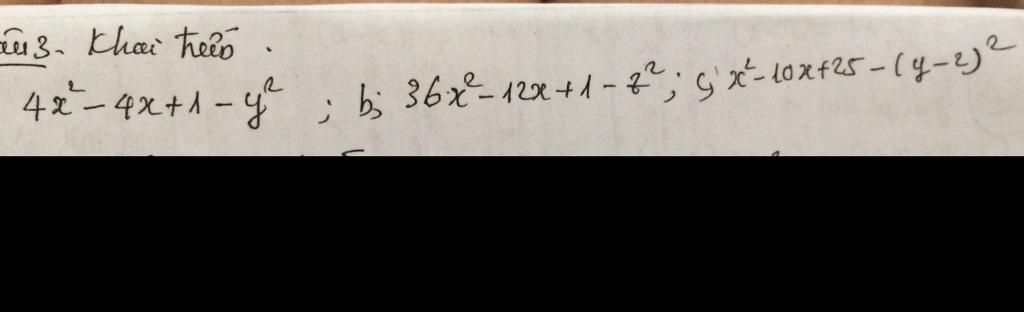 Câu 3. Khai triển.
4x² - 4x + 1 - y² ; b; 36x² - 12x + 1 - z² ; c; x² - 10x + 25 - (y - 2)²